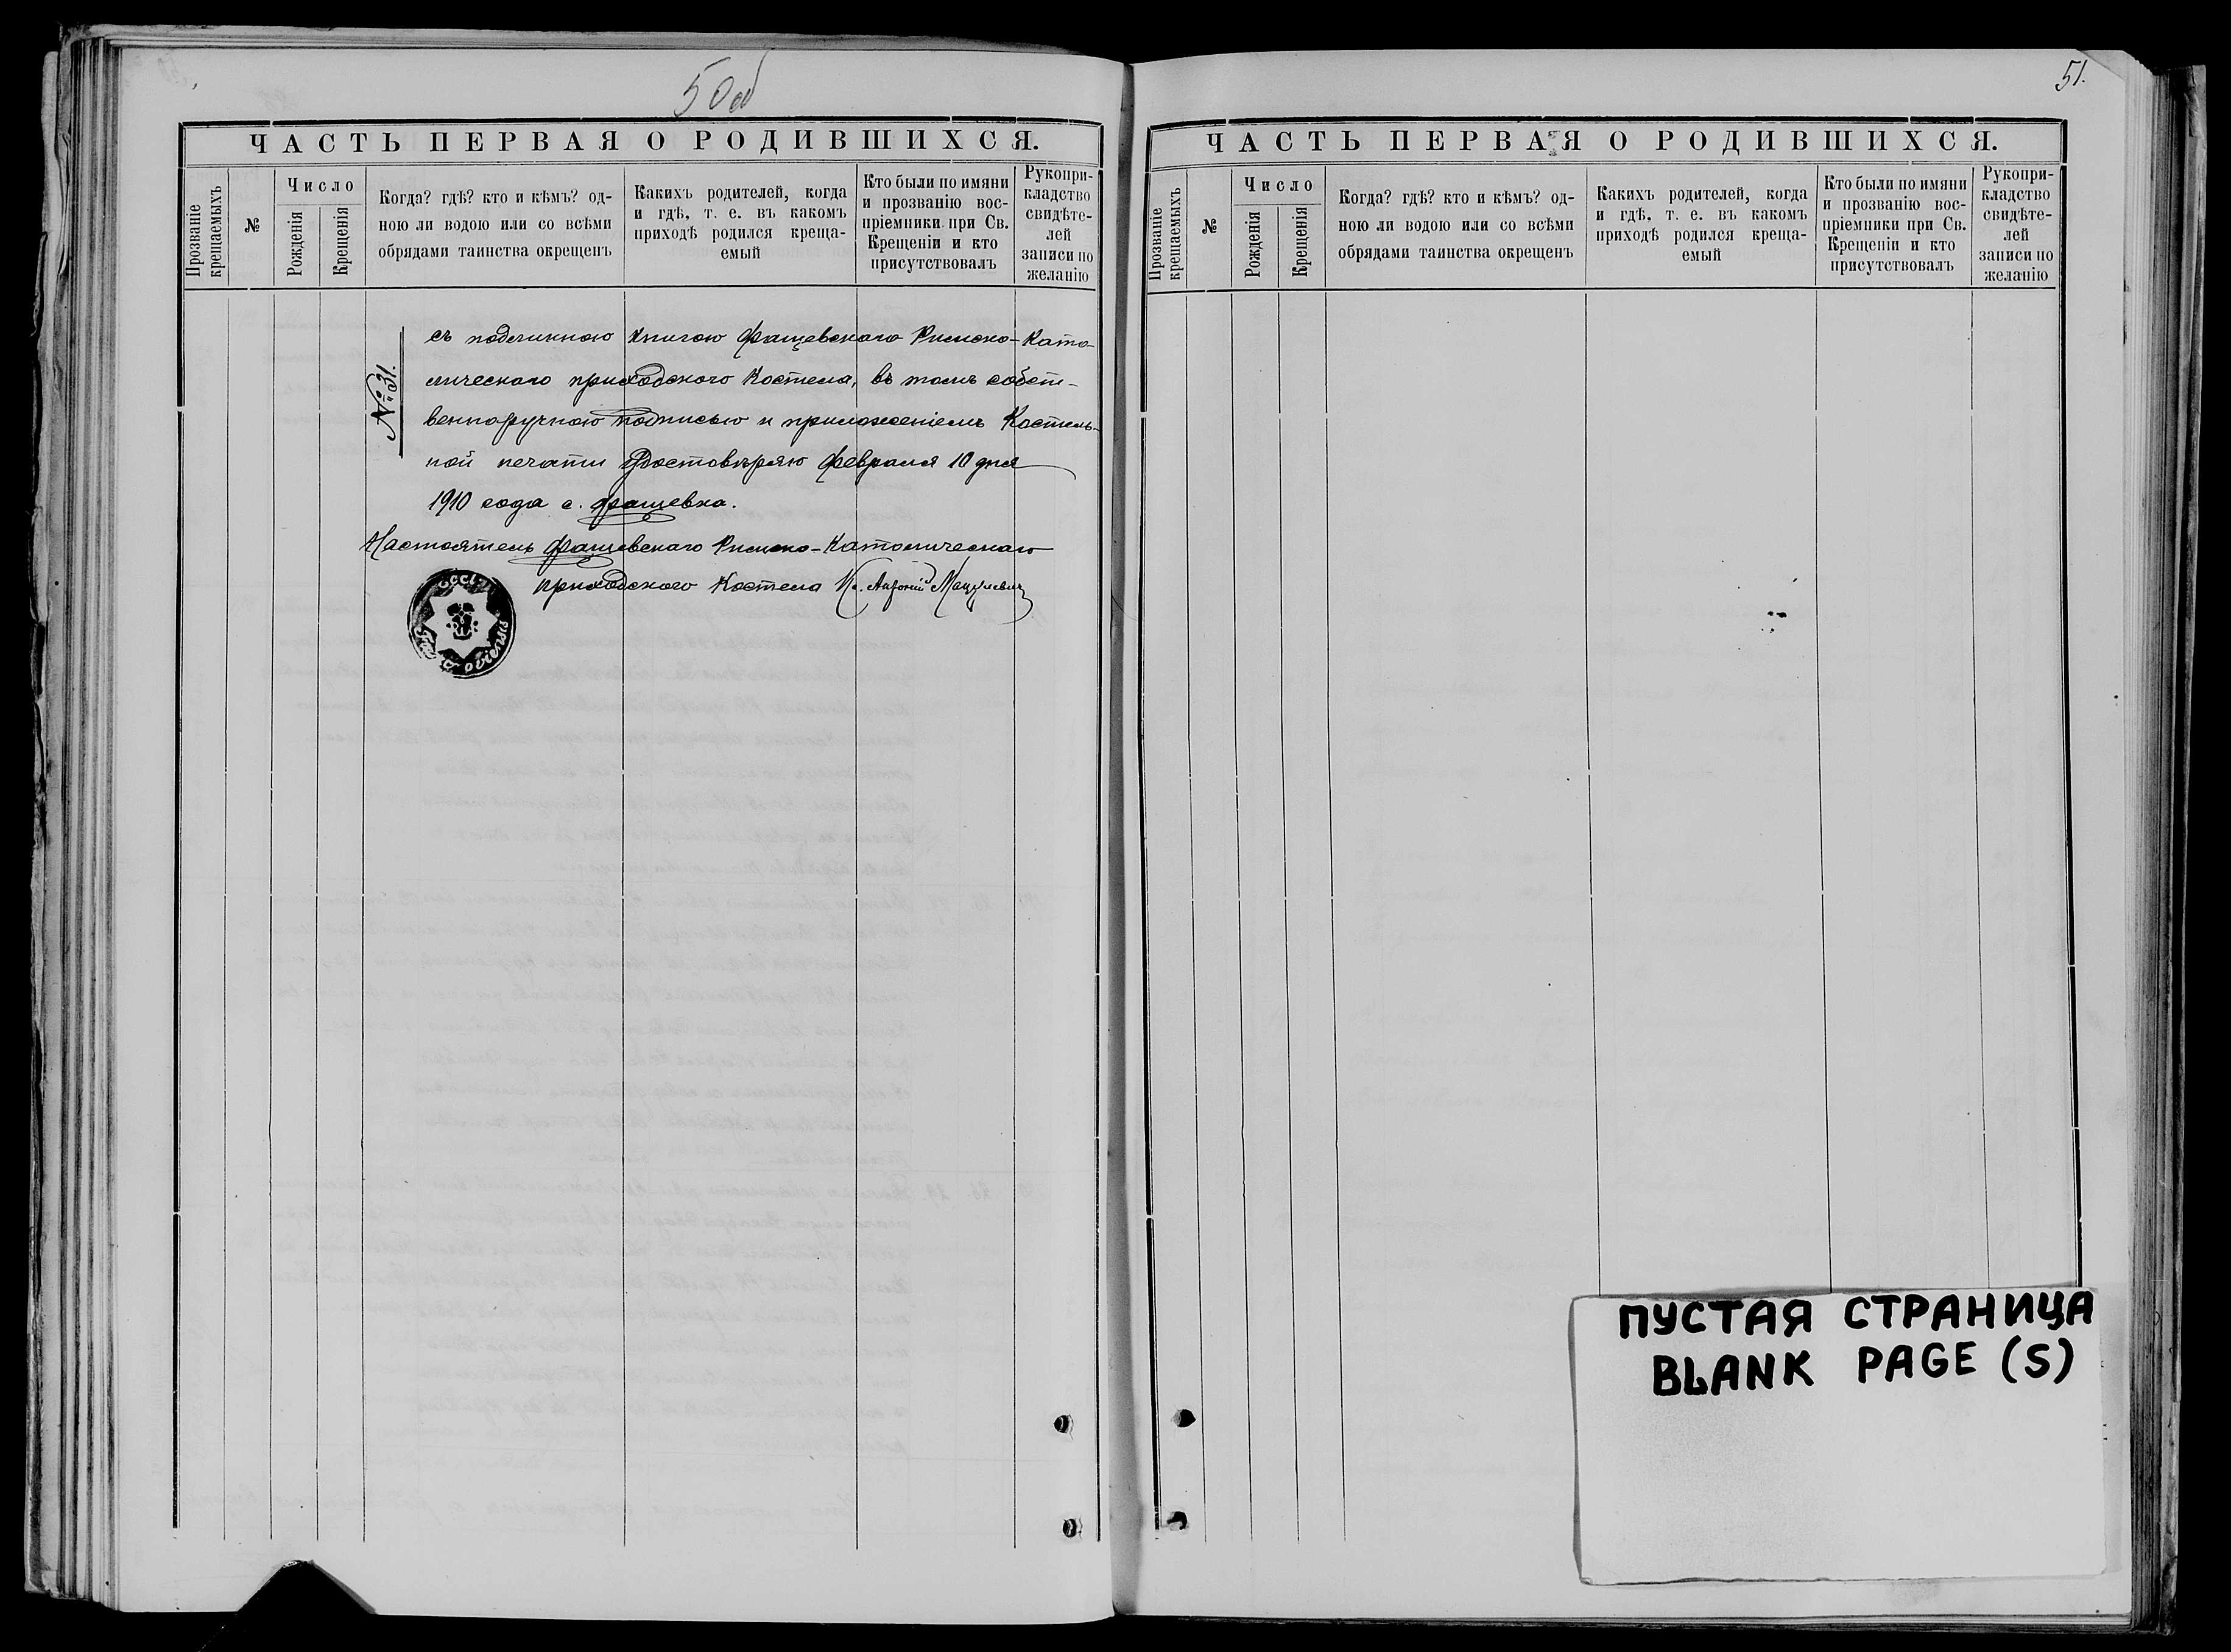 50об
ЧАСТЬ ПЕРВАЯ О РОДИВШИХСЯ.
Прозваніе крещаемыхъ
№
Число
Рожденія
Крещенія
Когда? гдѣ? кто и кѣмъ? од-
ною ли водою или со всѣми
обрядами таинства окрещенъ
Какихъ родителей, когда
и гдѣ, т. е. въ какомъ
приходѣ родился креща-
емый
Кто были по имяни
и прозванію вос-
пріемники при Св.
Крещеніи и кто
присутствовалъ
Рукопри-
кладство
свидѣте-
лей
записи по
желанію
№ 31.
съ подлинною книгою Фащевскаго Римско-Като-
лическаго приходскаго Костела, въ томъ собст-
венноручною подписью и приложеніемъ Костель-
ной печати удостовѣряю Февраля 10 дня
1910 года с. Фащевка.
Настоятель Фащевскаго Римско-Католическаго
приходскаго Костела Кс. Антоній Мацулевичъ
51.
ЧАСТЬ ПЕРВАЯ О РОДИВШИХСЯ.
Прозваніе крещаемыхъ
№
Число
Рожденія
Крещенія
Когда? гдѣ? кто и кѣмъ? од-
ною ли водою или со всѣми
обрядами таинства окрещенъ
Какихъ родителей, когда
и гдѣ, т. е. въ какомъ
приходѣ родился креща-
емый
Кто были по имяни
и прозванію вос-
пріемники при Св.
Крещеніи и кто
присутствовалъ
Рукопри-
кладство
свидѣте-
лей
записи по
желанію
ПУСТАЯ СТРАНИЦА
BLANK PAGE (S)